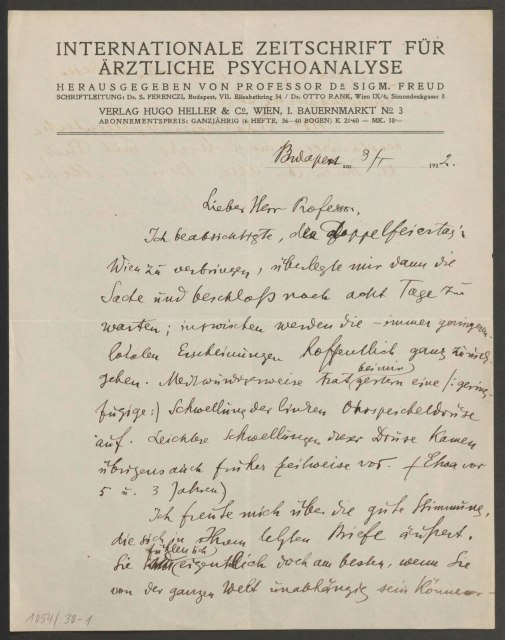 INTERNATIONALE ZEITSCHRIFT FÜR
ÄRZTLICHE PSYCHOANALYSE
HERAUSGEGEBEN VON PROFESSOR DR SIGM. FREUD
SCHRIFTLEITUNG: Dr. S. FERENCZI, Budapest, VII. Elisabethring 54 / Dr. OTTO RANK, Wien IX/4, Simondenkgasse 8
VERLAG HUGO HELLER & Co, WIEN, I. BAUERNMARKT No 3
ABONNEMENTSPREIS: GANZJÄHRIG (6 HEFTE, 36—40 BOGEN) K 21·60 — MK. 18·—
Budapest am 3/I 191
Lieber Herr Professor,
Ich beabsichtigte, den Doppelfeiertag
Wien zu verbringen, überlegte mir dann die
Sache und beschloß noch acht Tage zu
warten; inzwischen werden die – immer geringen
lokalen Erscheinungen hoffentlich ganz zurück
gehen. Merkwürdigerweise trat bei mir gestern eine /: gering
fügige :/ Schwellung der linken Ohrspeicheldrüse
auf. Leichtere Schwellungen dieser Drüse kamen
übrigens auch früher zeitweise vor. (Etwa vor
5 u. 3 Jahren)
Ich freute mich über die gute Stimmung,
die sich in Ihrem letzten Briefe äußert.
Sie fühlen sich eigentlich doch am besten, wenn Sie
von der ganzen Welt unabhängig sein können
1054/30-1